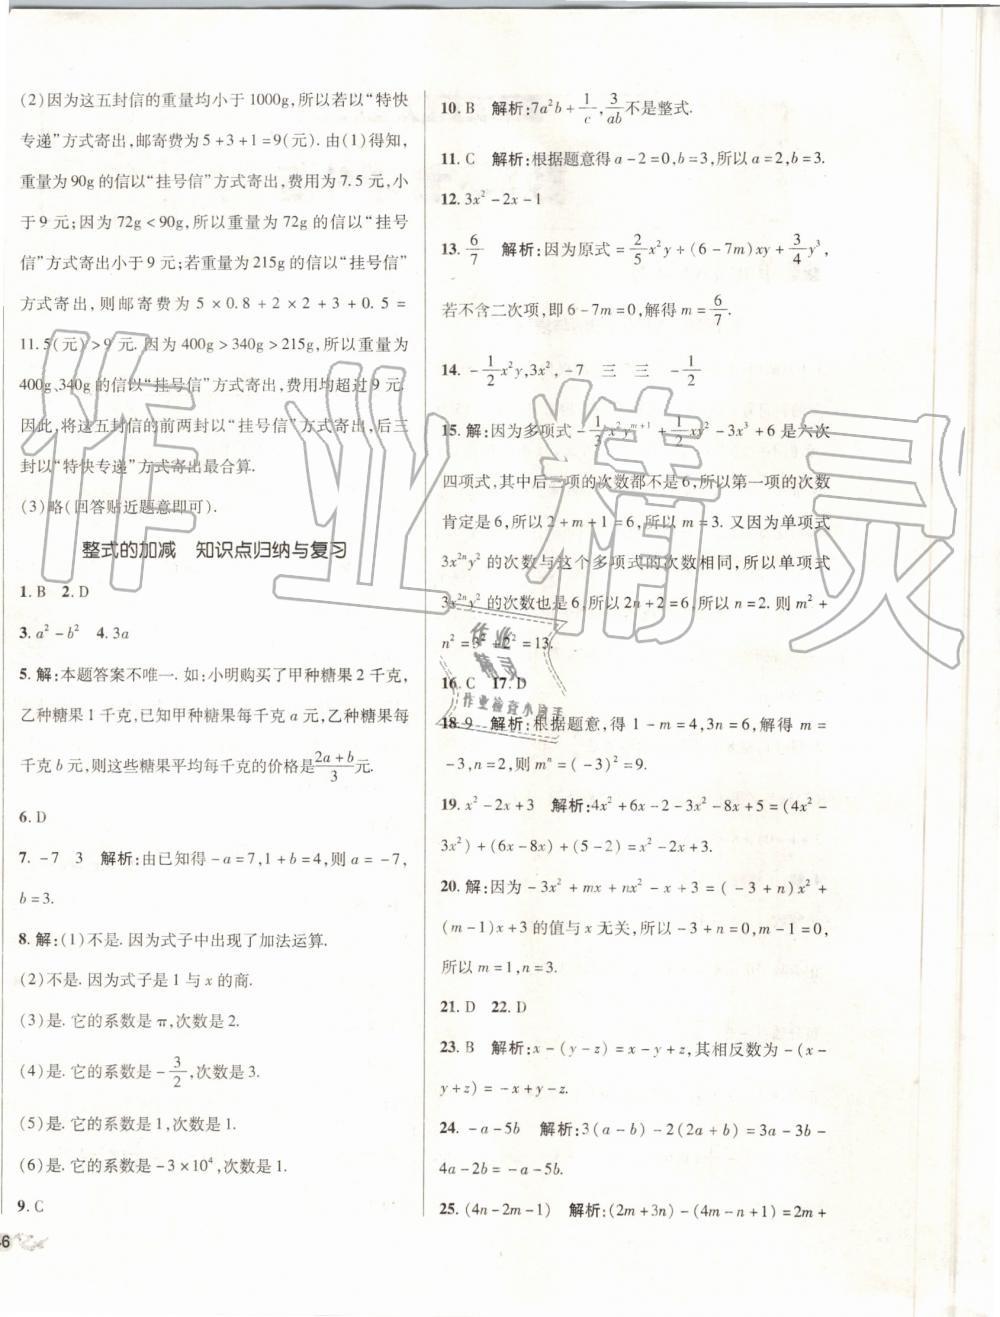 (2)因为这五封信的重量均小于1000g,所以若以“特快
专递”方式寄出,邮寄费为5+3+1=9(元). 由(1)得知,
重量为90g的信以“挂号信”方式寄出,费用为7.5元,小
于9元;因为72g<90g,所以重量为72g的信以“挂号
信”方式寄出小于9元;若重量为215g的信以“挂号信”
方式寄出,则邮寄费为5×0.8+2×2+3+0.5=
11.5(元)>9元. 因为400g>340g>215g,所以重量为
400g、340g的信以“挂号信”方式寄出,费用均超过9元.
因此,将这五封信的前两封以“挂号信”方式寄出,后三
封以“特快专递”方式寄出最合算.
(3)略(回答贴近题意即可).
整式的加减 知识点归纳与复习
1. B 2. D
3. a²-b² 4. 3a
5. 解:本题答案不唯一. 如:小明购买了甲种糖果2千克,
乙种糖果1千克,已知甲种糖果每千克a元,乙种糖果每
千克b元,则这些糖果平均每千克的价格是(2a+b)/3元.
6. D
7. -7 3 解析:由已知得-a=7,1+b=4,则a=-7,
b=3.
8. 解:(1)不是. 因为式子中出现了加法运算.
(2)不是. 因为式子是1与x的商.
(3)是. 它的系数是π,次数是2.
(4)是. 它的系数是-3/2,次数是3.
(5)是. 它的系数是1,次数是1.
(6)是. 它的系数是-3×10⁴,次数是1.
9. C
46
10. B 解析:7a²b+1/c,3/ab不是整式.
11. C 解析:根据题意得a-2=0,b=3,所以a=2,b=3.
12. 3x²-2x-1
13. 6/7 解析:因为原式=2/5x²y+(6-7m)xy+3/4y³,
若不含二次项,即6-7m=0,解得m=6/7.
14. -1/2x²y,3x²,-7 三 三 -1/2
15. 解:因为多项式-1/3x²yᵐ⁺¹+1/2xy²-3x³+6是六次
四项式,其中后三项的次数都不是6,所以第一项的次数
肯定是6,所以2+m+1=6,所以m=3. 又因为单项式
3x²ⁿy²的次数与这个多项式的次数相同,所以单项式
3x²ⁿy²的次数也是6,所以2n+2=6,所以n=2. 则m²+
n²=3²+2²=13.
16. C 17. D
18. 9 解析:根据题意,得1-m=4,3n=6,解得m=
-3,n=2,则mⁿ=(-3)²=9.
19. x²-2x+3 解析:4x²+6x-2-3x²-8x+5=(4x²-
3x²)+(6x-8x)+(5-2)=x²-2x+3.
20. 解:因为-3x²+mx+nx²-x+3=(-3+n)x²+
(m-1)x+3的值与x无关,所以-3+n=0,m-1=0,
所以m=1,n=3.
21. D 22. D
23. B 解析:x-(y-z)=x-y+z,其相反数为-(x-
y+z)=-x+y-z.
24. -a-5b 解析:3(a-b)-2(2a+b)=3a-3b-
4a-2b=-a-5b.
25. (4n-2m-1) 解析:(2m+3n)-(4m-n+1)=2m+
作业精灵
作业
精灵
作业检查小帮手